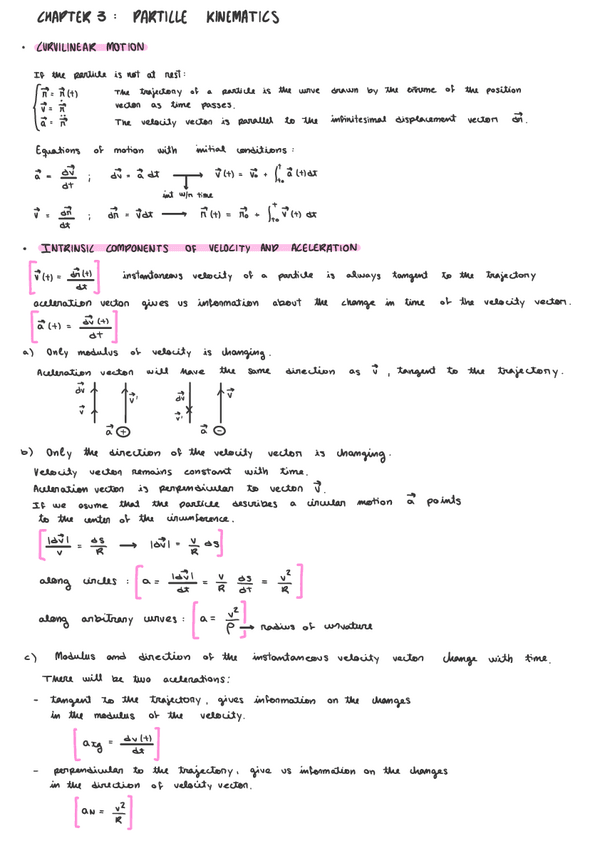 CHAPTER 3: PARTICLE KINEMATICS
• CURVILINEAR MOTION
If the particle is not at rest:
r⃗ = r⃗(t) The trajectory of a particle is the curve drawn by the
v⃗ = ṙ⃗ vector as time passes.
a⃗ = r̈⃗ The velocity vector is parallel to the infinitesimal displacement vector dr⃗.
Equations of motion with initial conditions:
a⃗ = dv⃗/dt ; dv⃗ = a⃗ dt → v⃗(t) = v⃗₀ + ∫ₜ₀ᵗ a⃗(t)dt
int w/n time
v⃗ = dr⃗/dt ; dr⃗ = v⃗dt → r⃗(t) = r⃗₀ + ∫ₜ₀ᵗ v⃗(t) dt
• INTRINSIC COMPONENTS OF VELOCITY AND ACELERATION
[v⃗(t) = dr⃗(t)/dt] instantaneous velocity of a particle is always tangent to the trajectory
aceleration vector gives us information about the change in time of the velocity vector.
[a⃗(t) = dv⃗(t)/dt]
a) Only modulus of velocity is changing.
Aceleration vector will have the same direction as v⃗, tangent to the trajectory.
dv⃗ v⃗ v⃗' dv⃗ v⃗' v⃗
a⃗ ⊕ a⃗ ⊖
b) Only the direction of the velocity vector is changing.
Velocity vector remains constant with time.
Aceleration vector is perpendicular to vector v⃗.
If we asume that the particle describes a circular motion a⃗ points
to the center of the circumference.
[|dv⃗|/v = ds/R → |dv⃗| = v/R ds]
along circles: [a = |dv⃗|/dt = v/R ds/dt = v²/R]
along arbitrary curves: [a = v²/ρ] → radius of curvature
c) Modulus and direction of the instantaneous velocity vector change with time.
There will be two acelerations:
- tangent to the trajectory, gives information on the changes
in the modulus of the velocity.
[a_tg = dv(t)/dt]
- perpendicular to the trajectory, give us information on the changes
in the direction of velocity vector.
[a_N = v²/R]